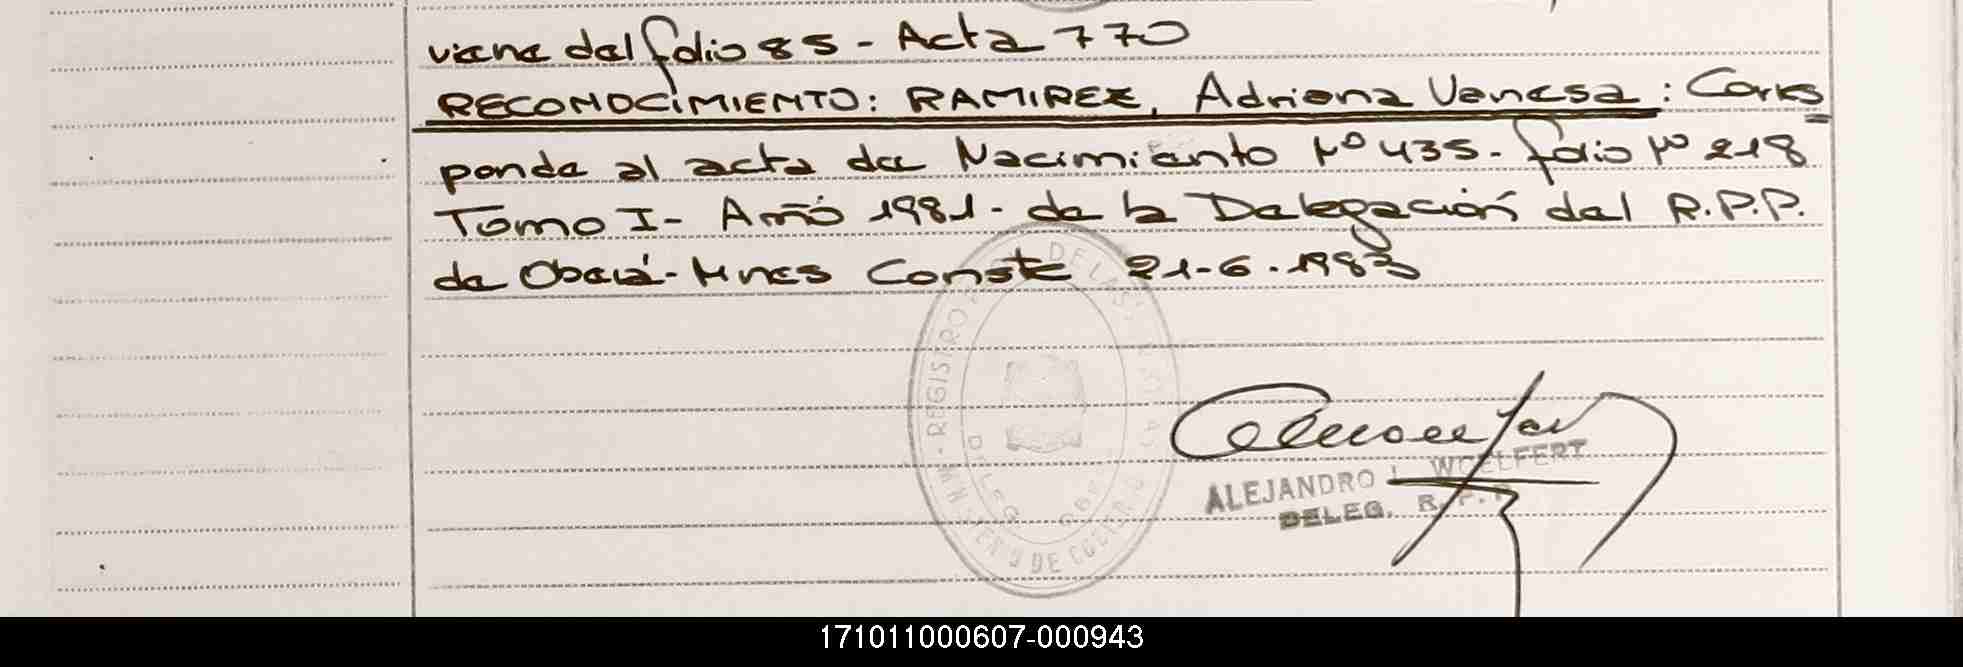 viene del folio 85 - Acta 770
RECONOCIMIENTO: RAMIREZ, Adriana Vanesa: Corres
ponde al acta de Nacimiento Nº 435 - folio Nº 218
Tomo I - Año 1981 - de la Delegación del R.P.P.
de Oberá - Mnes Conste 21-6-1983
REGISTRO DE LAS
DELEG.
ALEJANDRO L. WOELFERT
DELEG. R.P.P.
171011000607-000943